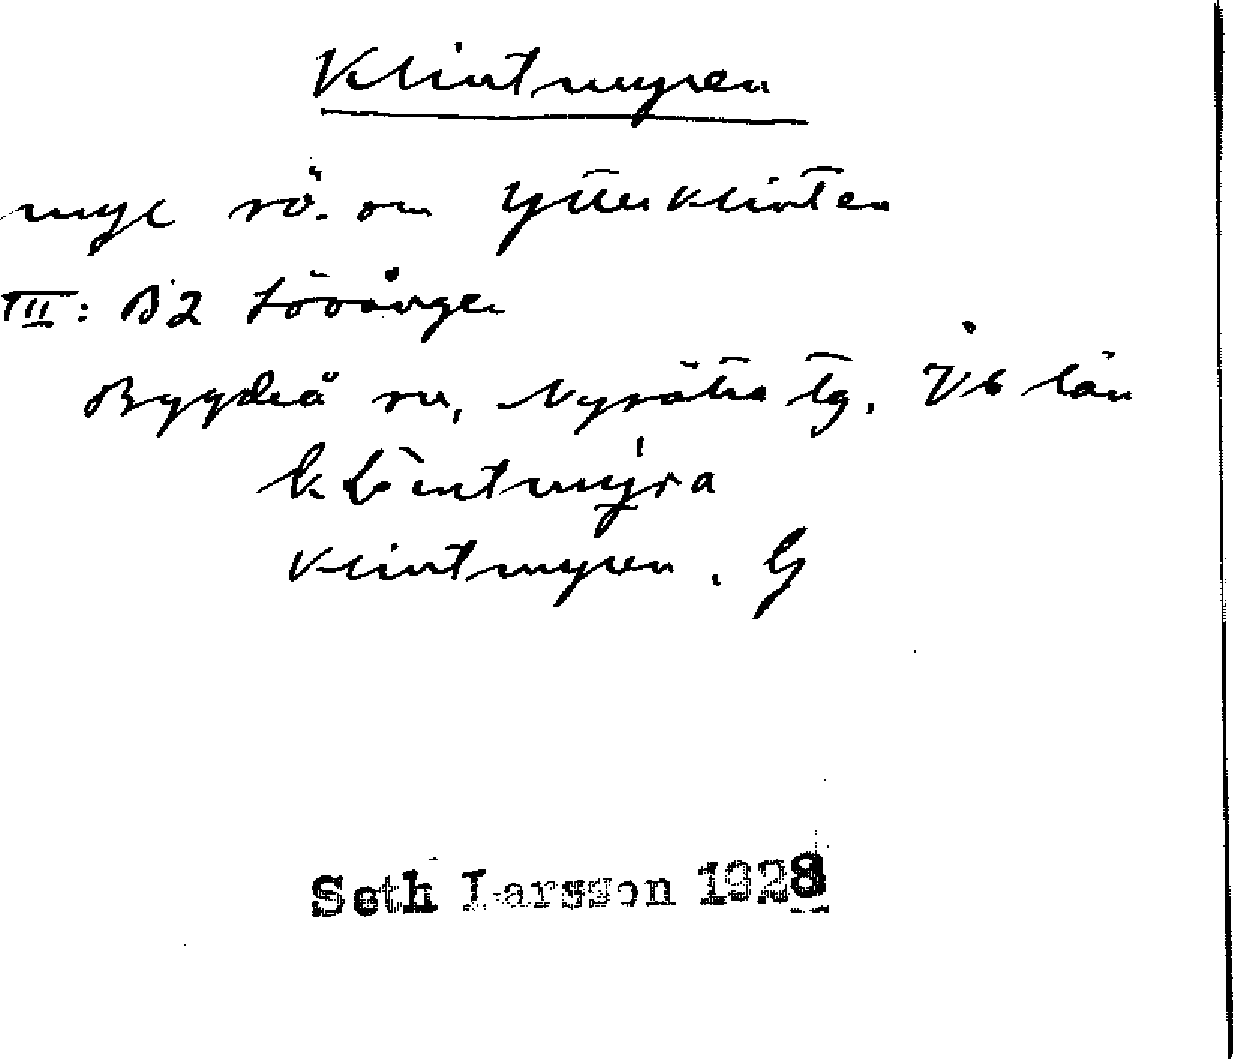 Klintmyren
myr sö. om Ytterklinten
III: B2 Lövånger
Bygdeå sn, Nysätra tg. Vb län
Klintmyren. G
Seth Larsson 1928